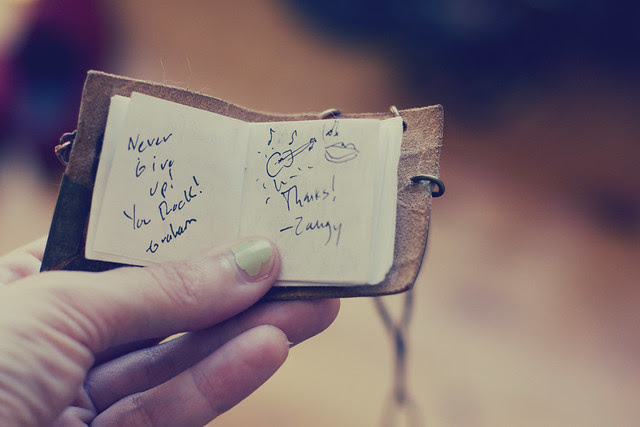 Never
Give
up!
You Rock!
Graham
Thanks!
-Zangy